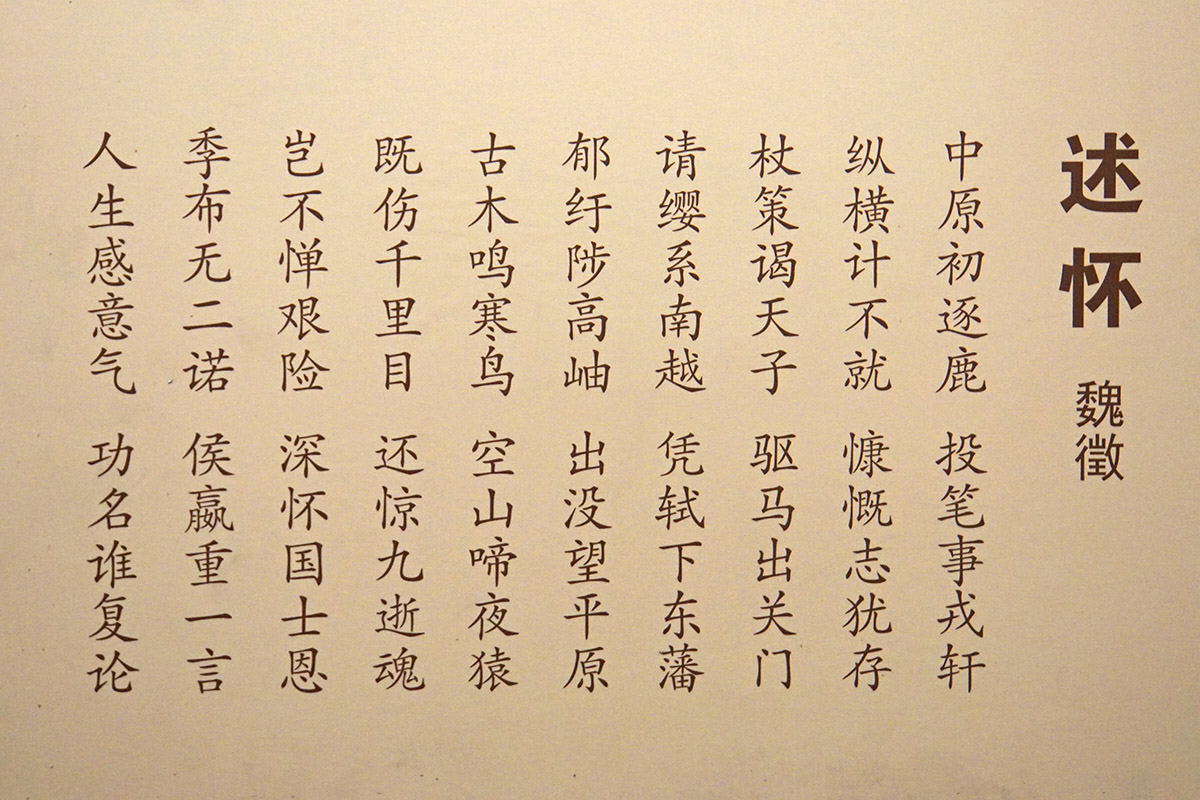 述怀
魏徵
中原初逐鹿 投笔事戎轩
纵横计不就 慷慨志犹存
杖策谒天子 驱马出关门
请缨系南越 凭轼下东藩
郁纡陟高岫 出没望平原
古木鸣寒鸟 空山啼夜猿
既伤千里目 还惊九逝魂
岂不惮艰险 深怀国士恩
季布无二诺 侯嬴重一言
人生感意气 功名谁复论